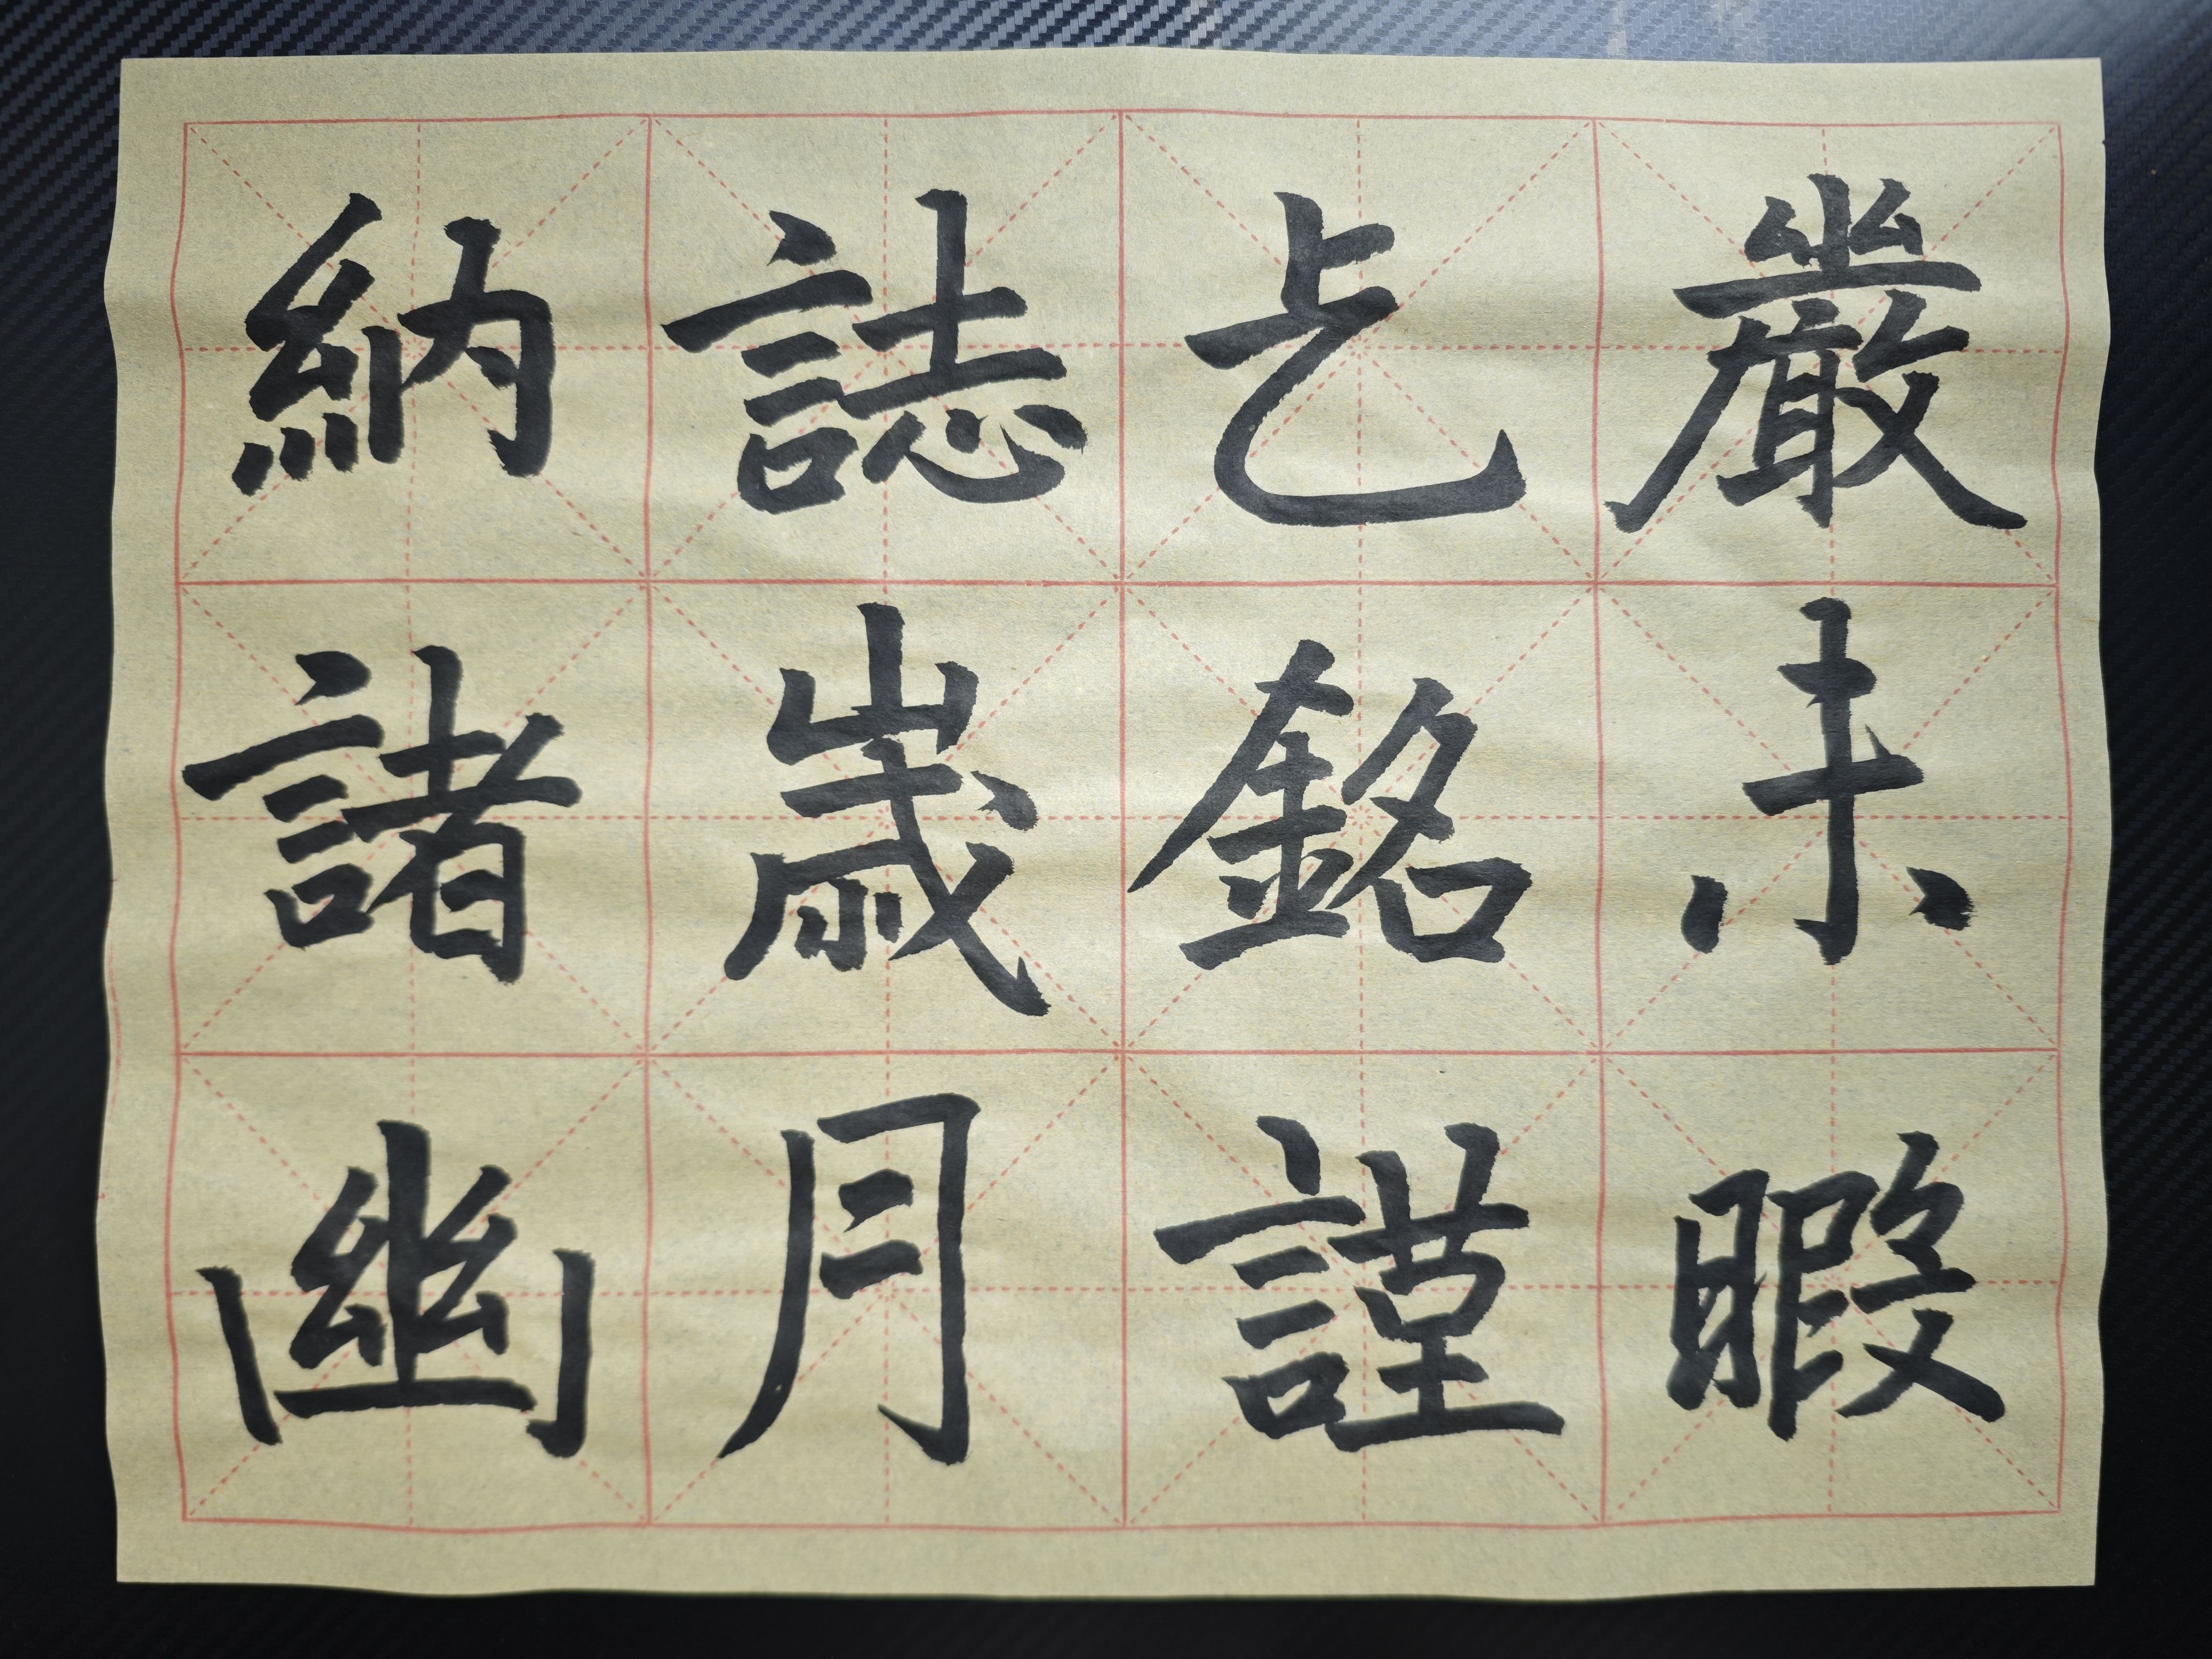 嚴未暇
乞銘謹
誌歲月
納諸幽